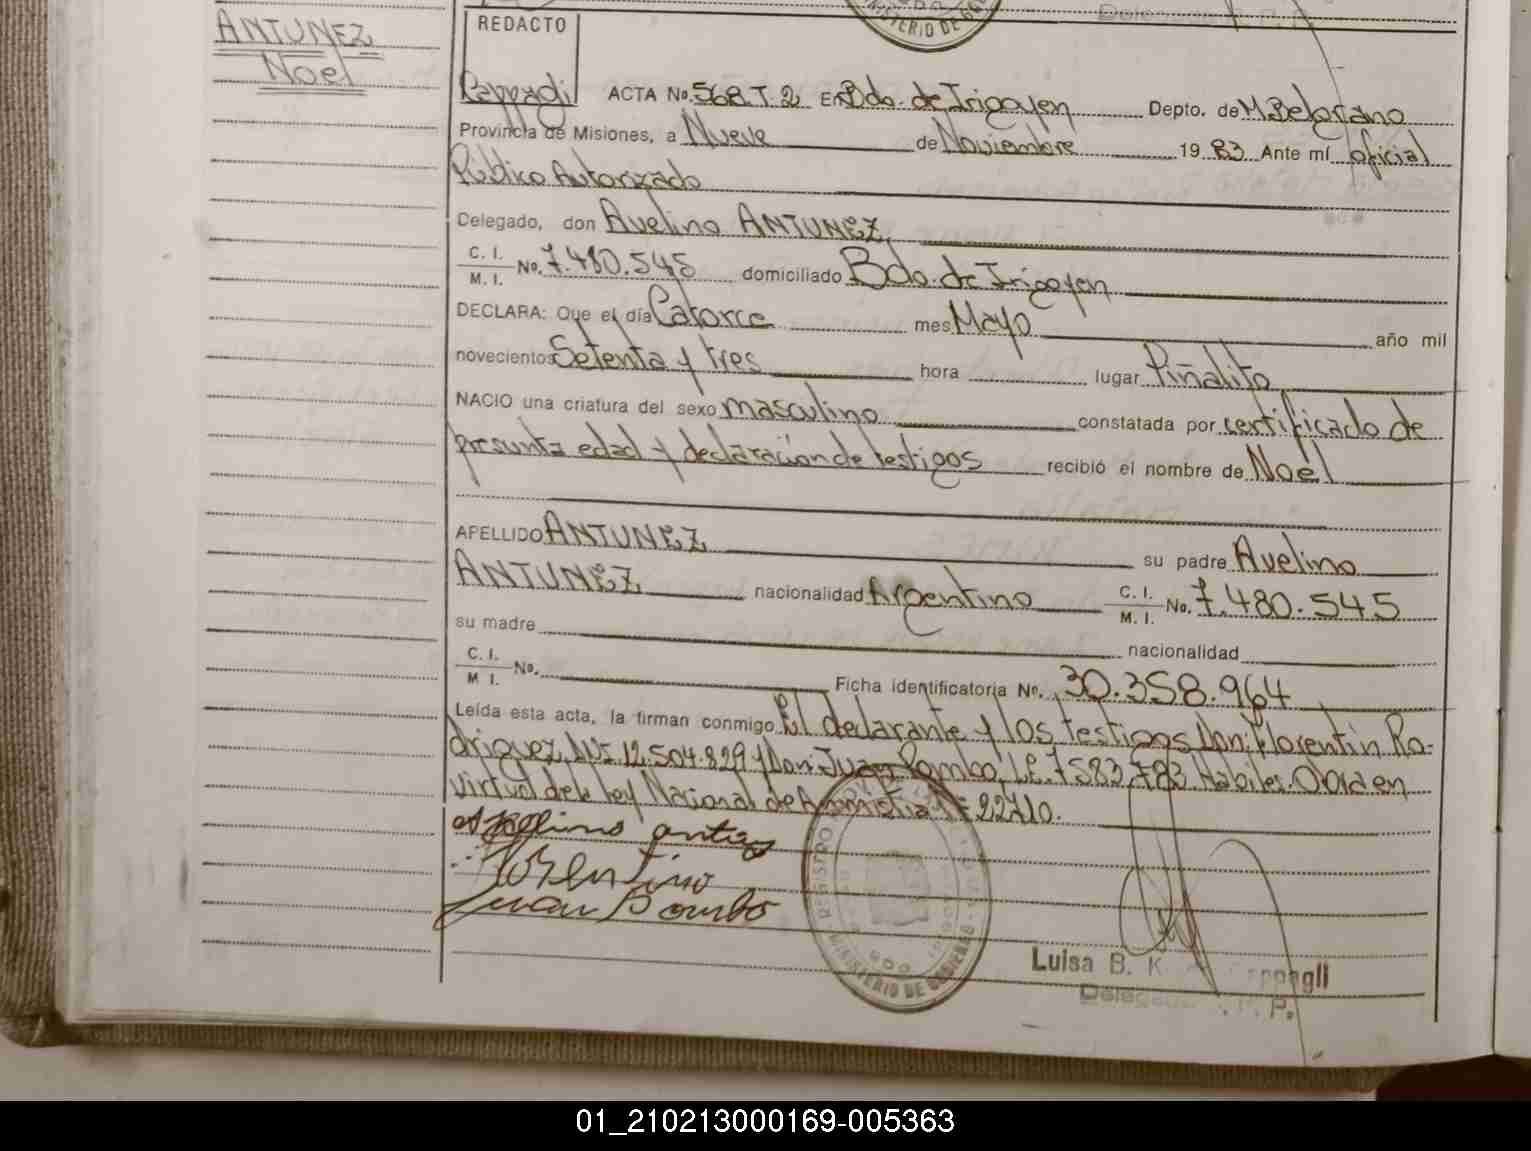 ANTUNEZ
Noel
REDACTO
MINISTERIO DE
ACTA No. 568. T. 2 En Bdo. de Irigoyen Depto. de M Belgrano
Provincia de Misiones, a Nueve de Noviembre 19 83 Ante mí oficial
Público Autorizado
Delegado, don Avelino ANTUNEZ,
C. I.
M. I. No. 7.480.545 domiciliado Bdo. de Irigoyen
DECLARA: Que el día Catorce mes Mayo año mil
novecientos Setenta y tres hora lugar Piñalito
NACIO una criatura del sexo masculino constatada por certificado de
presunta edad y declaración de testigos recibió el nombre de Noel
APELLIDO ANTUNEZ su padre Avelino
ANTUNEZ nacionalidad Argentino C. I.
M. I. No. 7.480.545
su madre nacionalidad
C. I.
M I. No. Ficha identificatoria No. 30.358.964
Leída esta acta, la firman conmigo El declarante y los testigos Don: Florentín Ro-
driguez, 12.504.829 y Don Juan Bombo, L.E. 7583.783 Habiles. Obra en
Virtud de la ley Nacional de Amnistia Nº 22410.
Florentino
Juan Bombo
REGISTRO
MINISTERIO DE GOBIERNO
Luisa B. K
Delegada P.
01_210213000169-005363